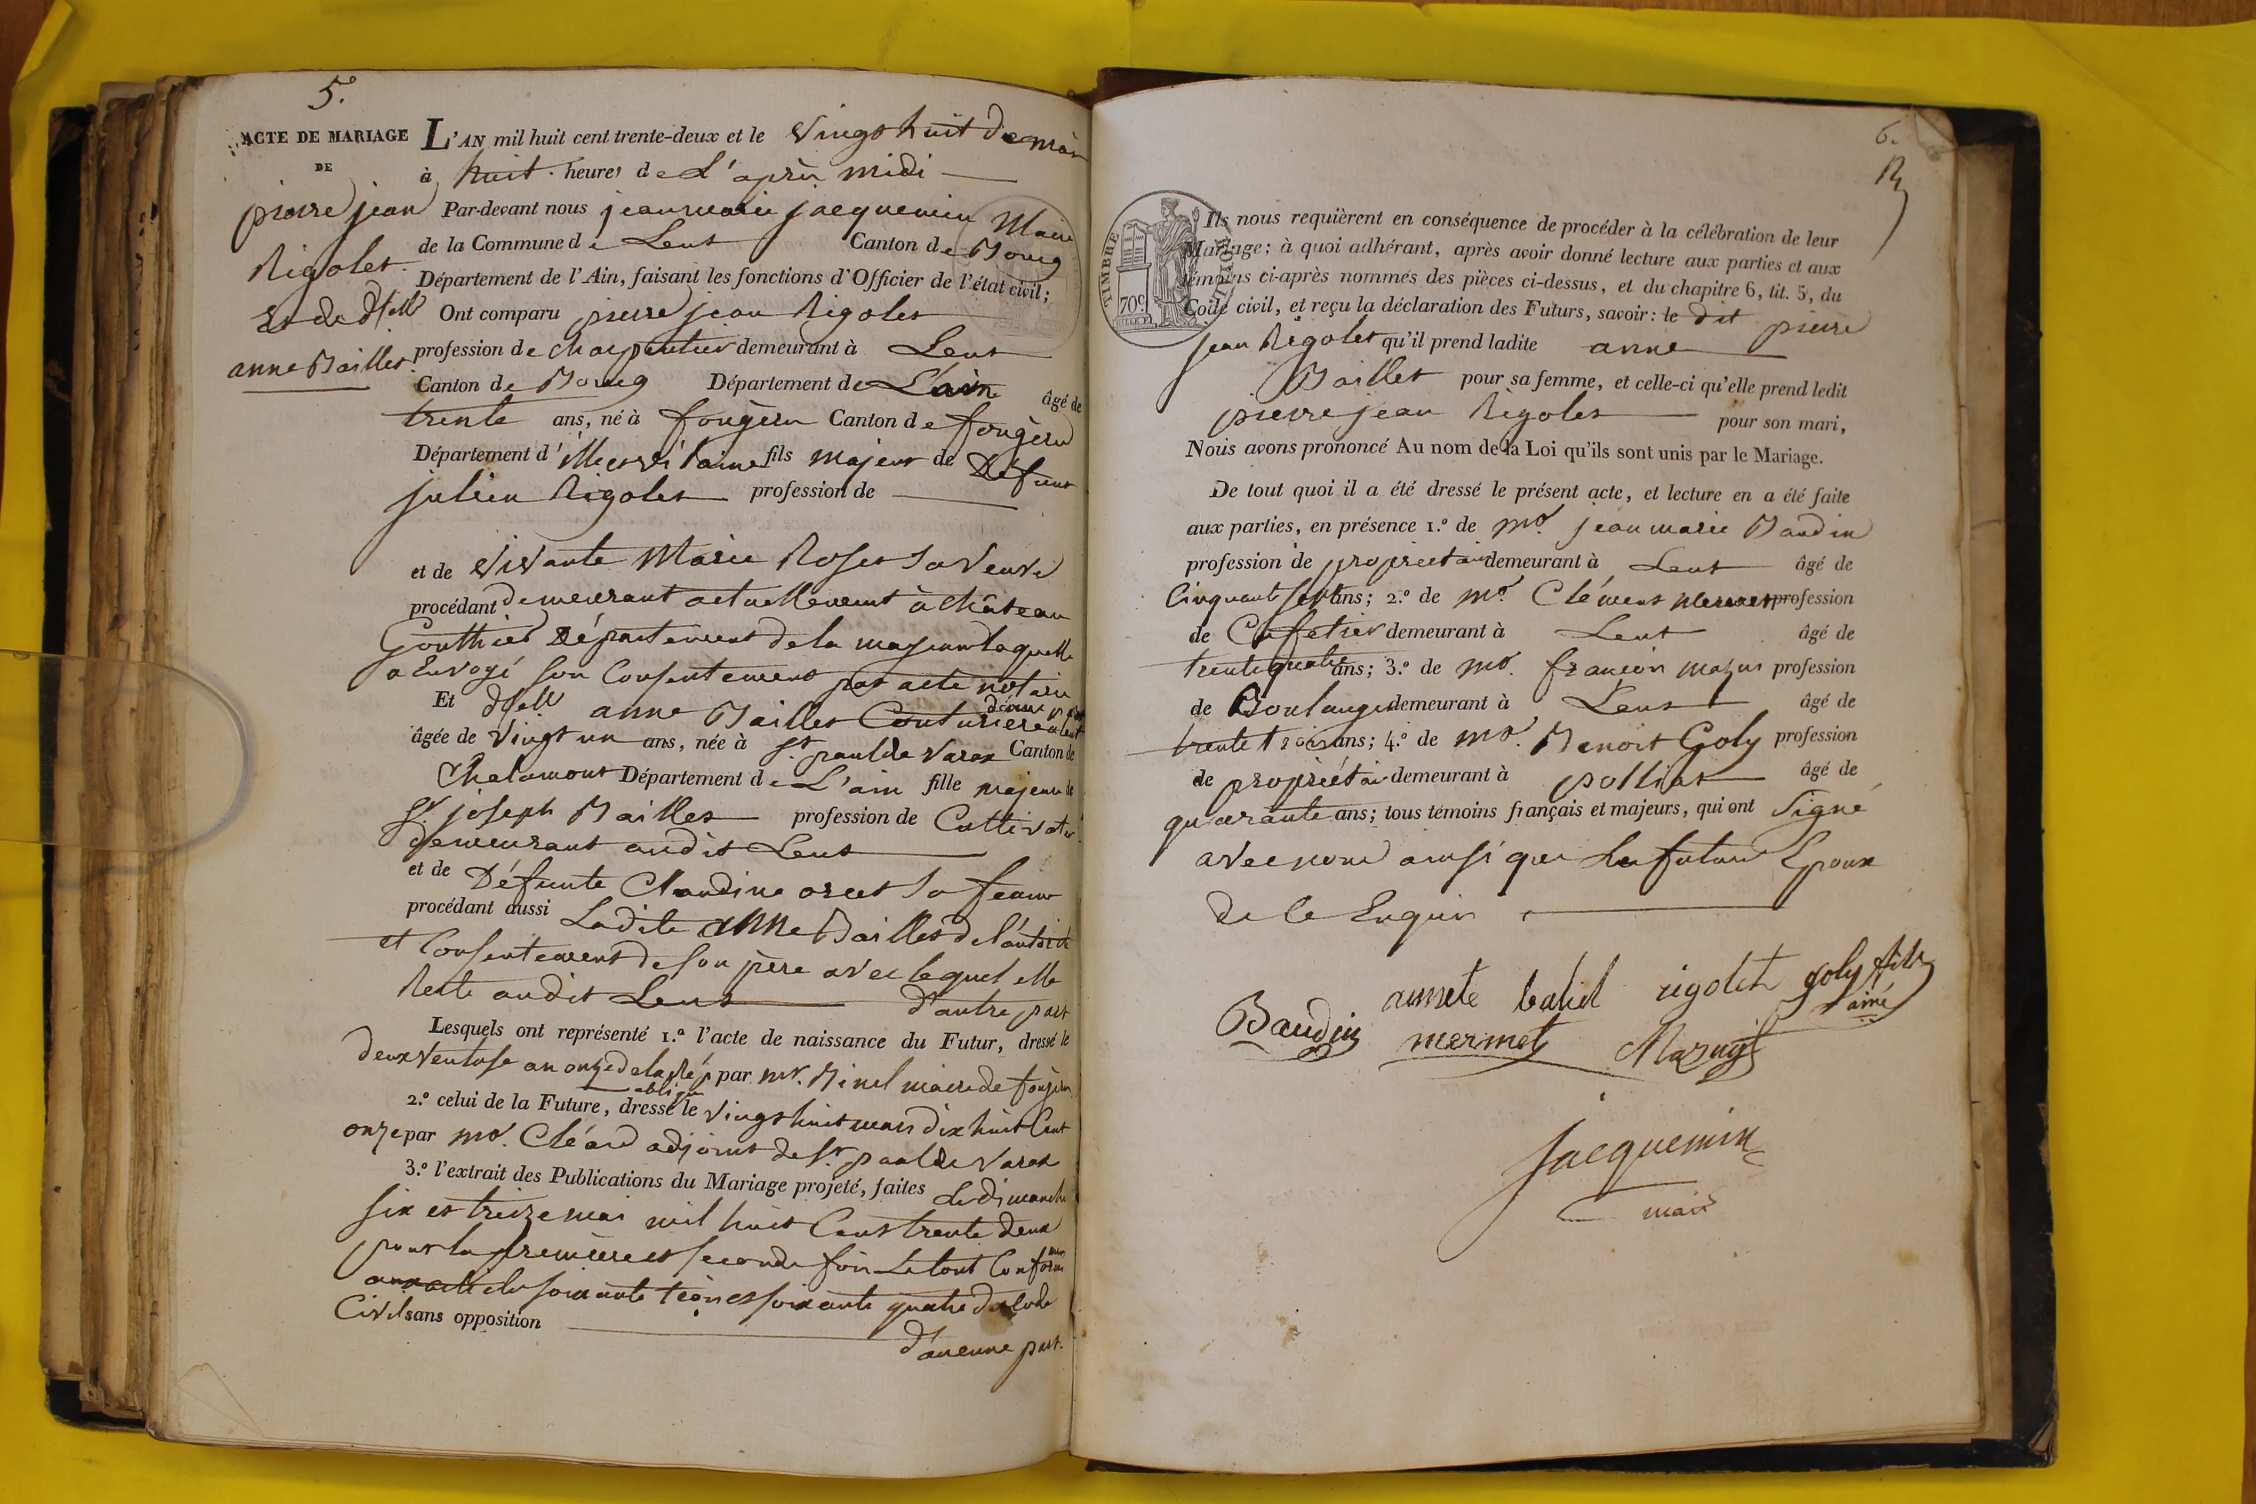 5.
ACTE DE MARIAGE
DE
pierre jean
Rigolet
Et de dlle
anne Baillet
L'AN mil huit cent trente-deux et le vingt huit de mai
à huit heures de L'après midi
Par-devant nous jean marie jacquemin Maire
de la Commune de Lent Canton de Bourg
Département de l'Ain, faisant les fonctions d'Officier de l'état civil;
Ont comparu pierre jean Rigolet
profession de charpentier demeurant à Lent
Canton de Bourg Département de L'ain âgé de
trente ans, né à fougères Canton de fougères
Département d'illeetvilaine fils majeur de Défunt
julien Rigolet profession de
et de vivante Marie Roset sa veuve
procédant demeurant actuellement à château
Gonthier Département de la mayenne laquelle
a Envoyé son Consentement par acte notarié
d'une part
Et dlle anne Baillet Couturière a Lent
âgée de vingt un ans, née à st. paul de varax Canton de
Chalamont Département de L'ain fille majeure de
Sr joseph Baillet profession de Cultivateur
demeurant audit Lent
et de Défunte Claudine orcet sa femme
procédant aussi Ladite anne Baillet de l'autorité
et Consentement de son père avec lequel elle
Reste audit Lent d'autre part
Lesquels ont représenté 1.º l'acte de naissance du Futur, dressé le
deux ventose an onze de la rép par mr. Binel maire de fougères
2.º celui de la Future, dressé le vingt huit mars dix huit Cent
onze par mr. Cléard adjoint de st. paul de varax
3.º l'extrait des Publications du Mariage projeté, faites Le dimanche
six et treize mai mil huit Cent trente deux
pour la première et seconde fois Le tout Conformément
aux articles soixante trois et soixante quatre du Code
Civil sans opposition
d'aucune part.
6.
TIMBRE ROYAL
70c
Ils nous requièrent en conséquence de procéder à la célébration de leur
Mariage; à quoi adhérant, après avoir donné lecture aux parties et aux
témoins ci-après nommés des pièces ci-dessus, et du chapitre 6, tit. 5, du
Code civil, et reçu la déclaration des Futurs, savoir: le dit pierre
jean Rigolet qu'il prend ladite anne
Baillet pour sa femme, et celle-ci qu'elle prend ledit
pierre jean Rigolet pour son mari,
Nous avons prononcé Au nom de la Loi qu'ils sont unis par le Mariage.
De tout quoi il a été dressé le présent acte, et lecture en a été faite
aux parties, en présence 1.º de mr. jean marie Baudin
profession de proprietaire demeurant à Lent âgé de
Cinquante sept ans; 2.º de mr. Clément mermet profession
de Cafetier demeurant à Lent âgé de
trente quatre ans; 3.º de mr. françois mazuy profession
de Boulanger demeurant à Lent âgé de
trente trois ans; 4.º de mr. Benoit Goly profession
de propriétaire demeurant à polliat âgé de
quarante ans; tous témoins français et majeurs, qui ont Signé
avec nous ainsi que les futurs Epoux
de ce Enquis
Baudin annete baliel rigolet goly fils
ainé
mermet Mazuy
jacquemin
maire